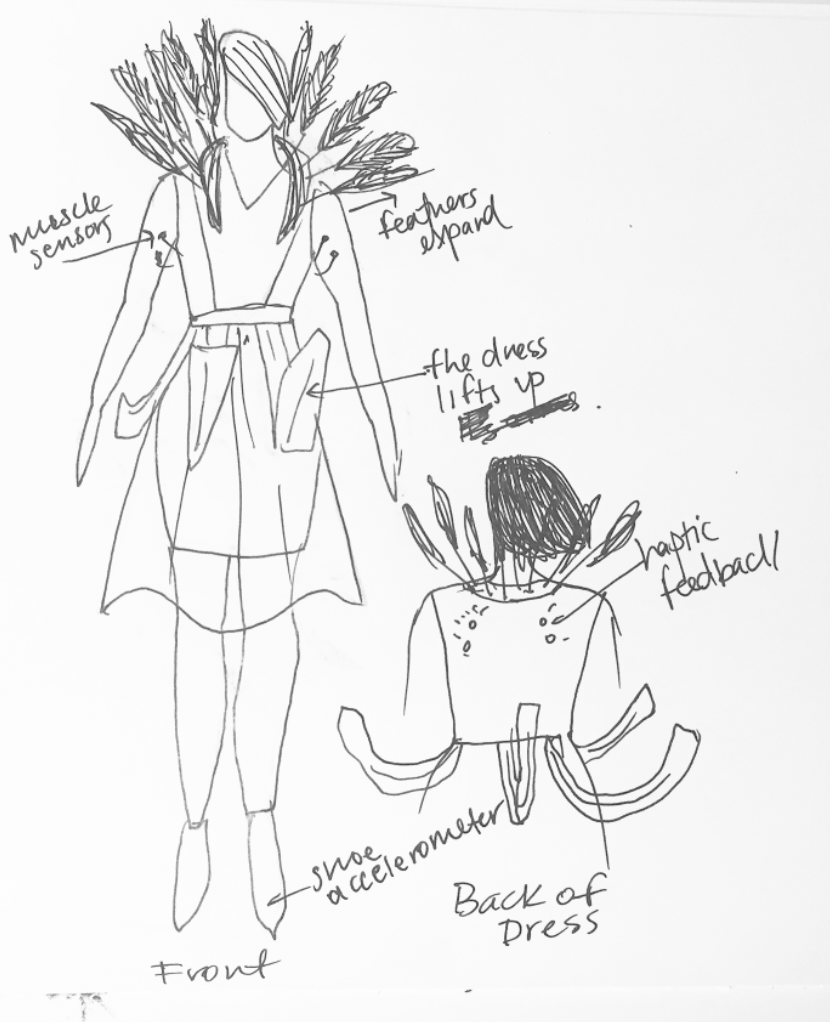 muscle
sensors
feathers
expand
the dress
lifts up
haptic
feedback
shoe
accelerometer
Back of
Dress
Front